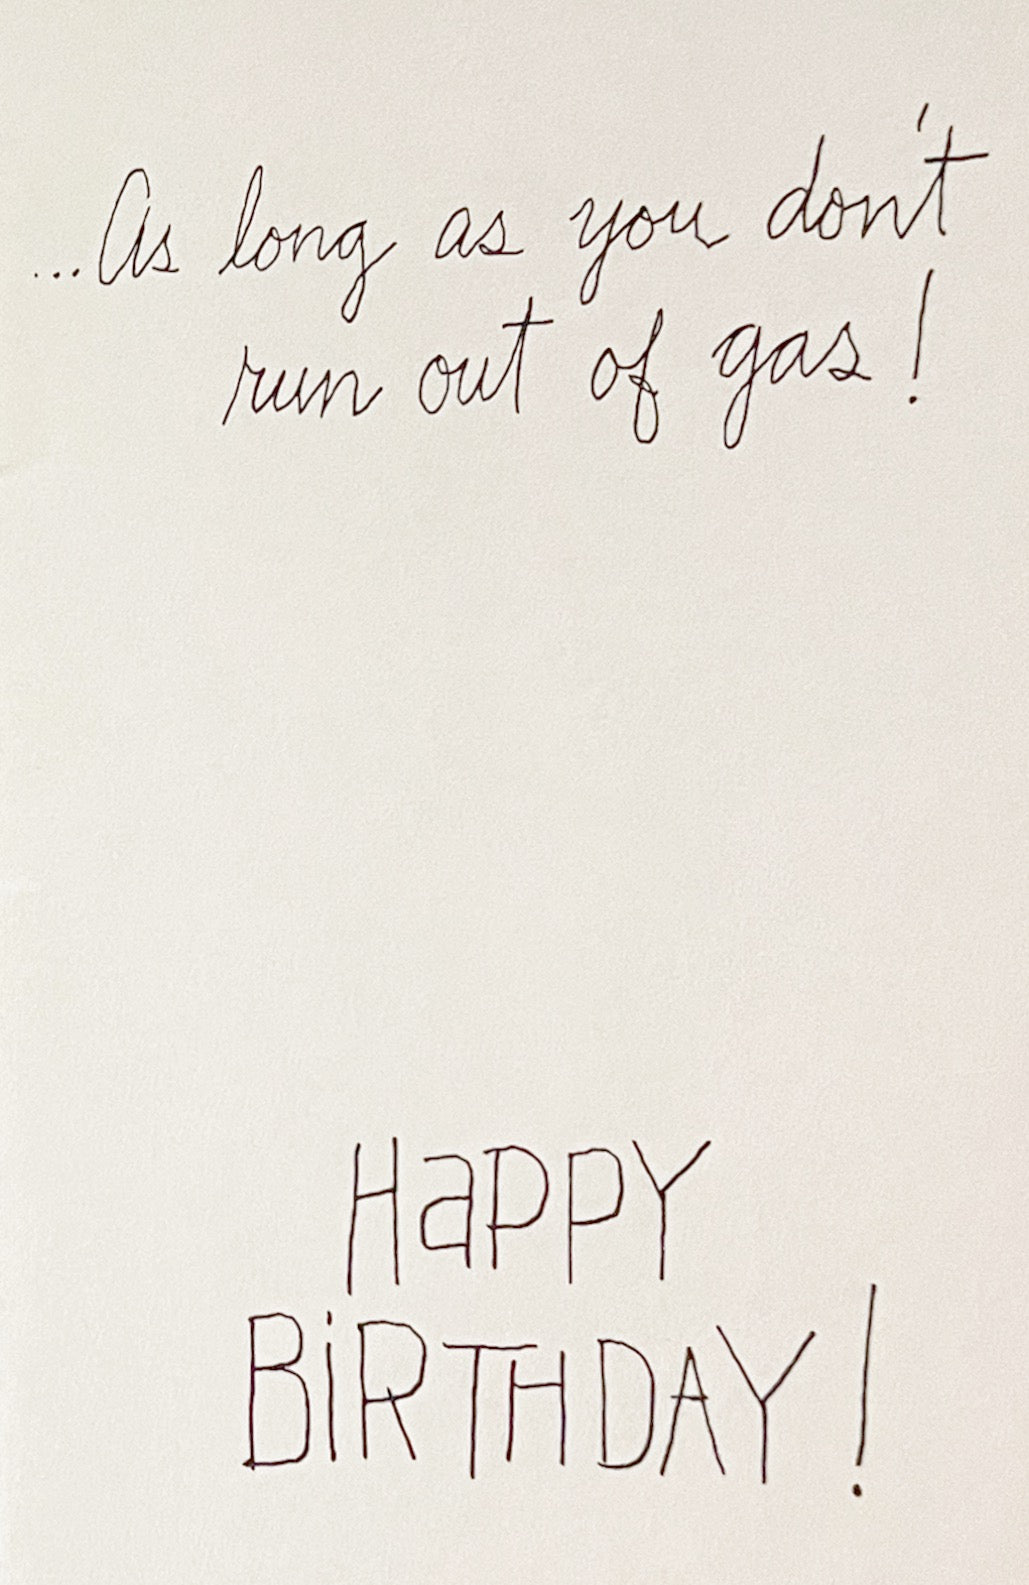 ...As long as you don't
run out of gas!
HaPPY
BiRTHDAY!